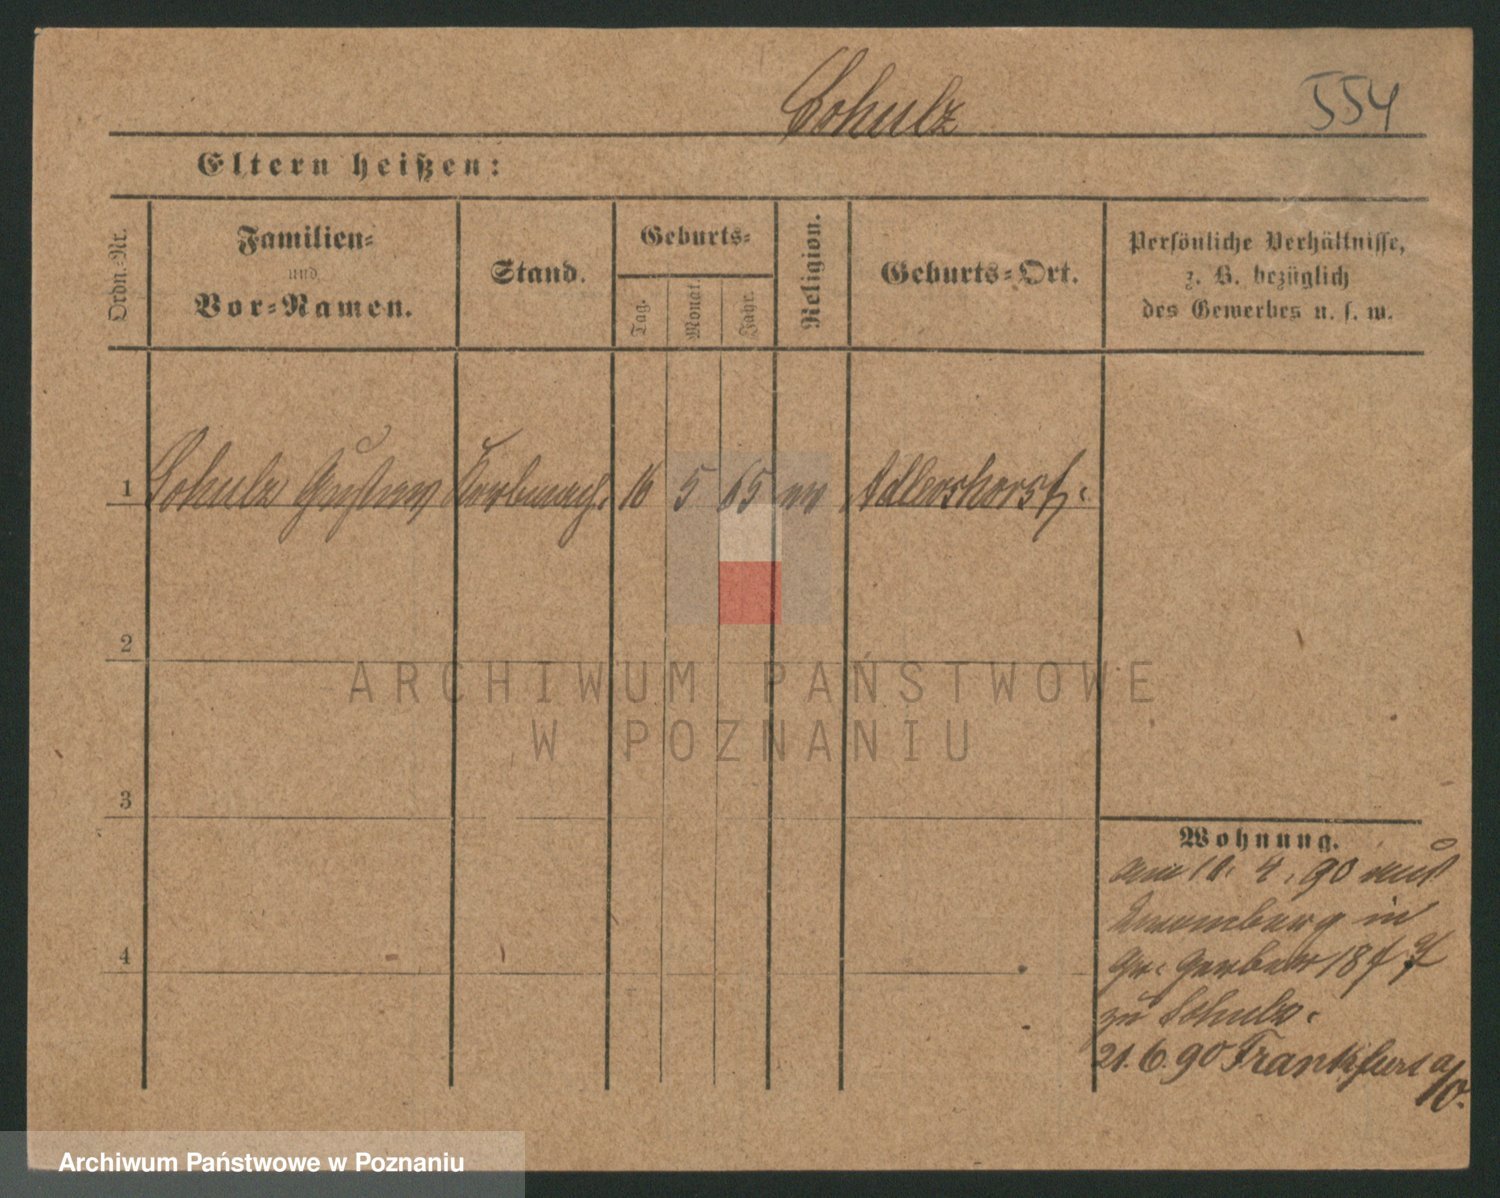 Schulz
554
Eltern heißen:
Ordn.-Nr.
Familien-
und
Vor-Namen.
Stand.
Geburts-
Tag.
Monat.
Jahr.
Religion.
Geburts-Ort.
Persönliche Verhältnisse,
z. B. bezüglich
des Gewerbes u. s. w.
1 Schulz Gustav Korbmach. 16 5 65 ev Adlershorst.
2
3
4
Wohnung.
am 10. 4. 90 aus
in
Gr. Gerber 18
zu Schulz.
21.6.90 Frankfurt a/O.
ARCHIWUM PAŃSTWOWE
W POZNANIU
Archiwum Państwowe w Poznaniu